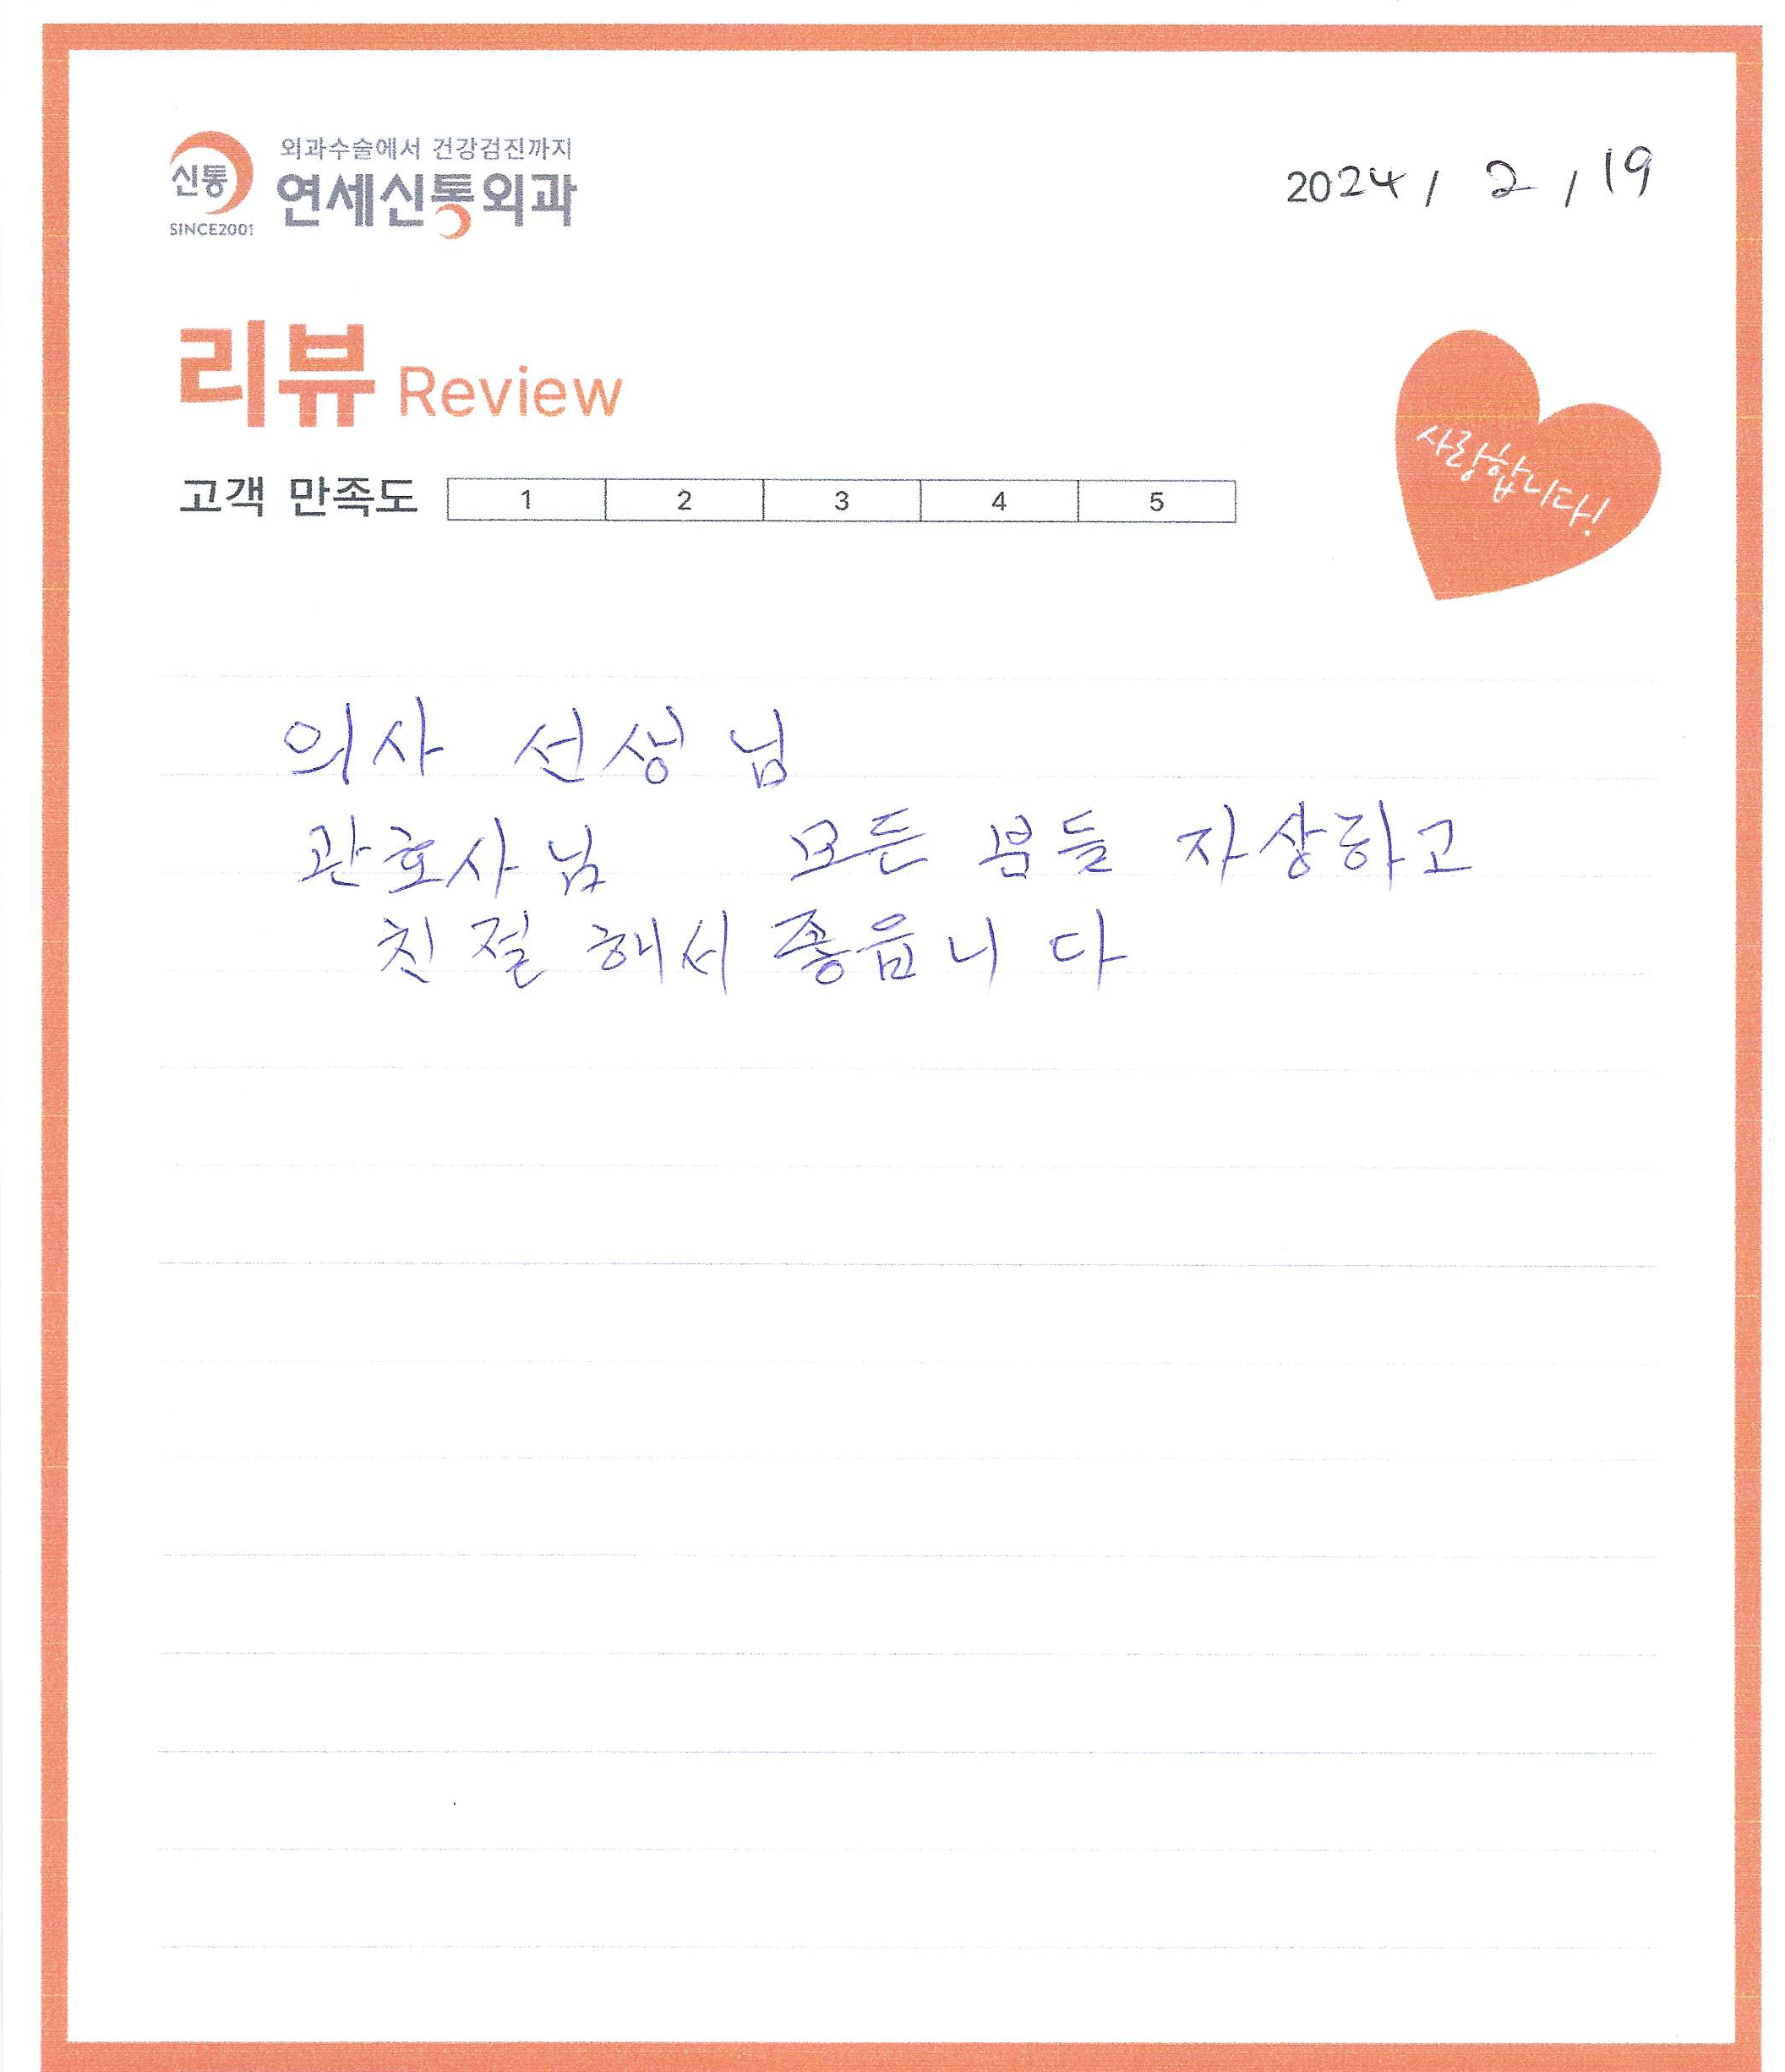 외과수술에서 건강검진까지
신통
연세신통외과
SINCE2001
2024 / 2 / 19
리뷰 Review
사랑합니다!
고객 만족도 1 2 3 4 5
의사 선생님
관호사님 모든 분들 자상하고
친절해서 좋읍니다